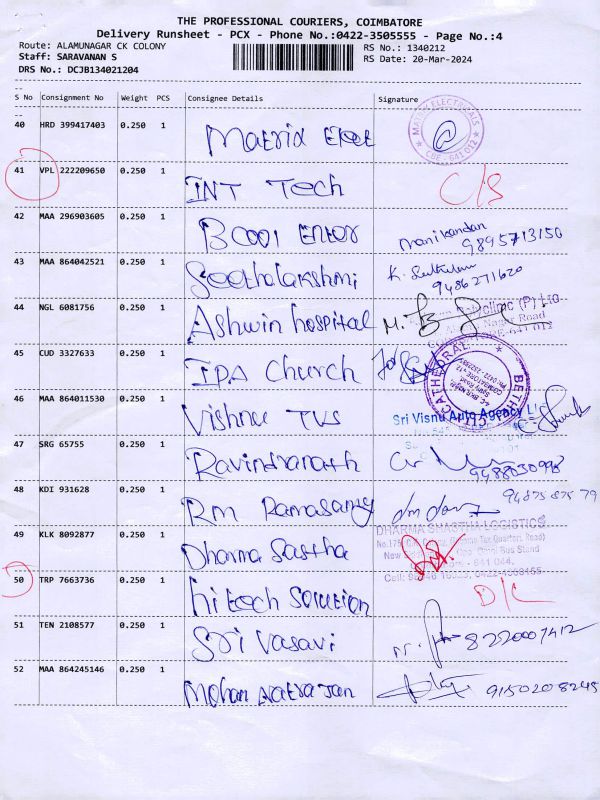 THE PROFESSIONAL COURIERS, COIMBATORE
Delivery Runsheet - PCX - Phone No.:0422-3505555 - Page No.:4
Route: ALAMUNAGAR CK COLONY
RS No.: 1340212
Staff: SARAVANAN S
RS Date: 20-Mar-2024
DRS No.: DCJB134021204
S No Consignment No Weight PCS Consignee Details Signature
40 HRD 399417403 0.250 1 Matrix Elect
MATRIX ELECTRICALS
CBE - 641 012
41 VPL 222209650 0.250 1 INT Tech C/S
42 MAA 296903605 0.250 1 Manikandan
9895713150
43 MAA 864042521 0.250 1 Seethalakshmi K.
9486271620
44 NGL 6081756 0.250 1 Ashwin hospital M.
45 CUD 3327633 0.250 1 IPA Church
CATHEDRAL
46 MAA 864011530 0.250 1 Vishnu TVS
Sri Visnu Auto Agency
47 SRG 65755 0.250 1 Ravindranath
48 KDI 931628 0.250 1 RM Ramasamy
49 KLK 8092877 0.250 1 Dharma Sastha
DHARMA SHASTHA LOGISTICS
50 TRP 7663736 0.250 1 hi tech Solution D/C
51 TEN 2108577 0.250 1 Sri Vasavi 8220007412
52 MAA 864245146 0.250 1 Mohan Natrajan 9150208245